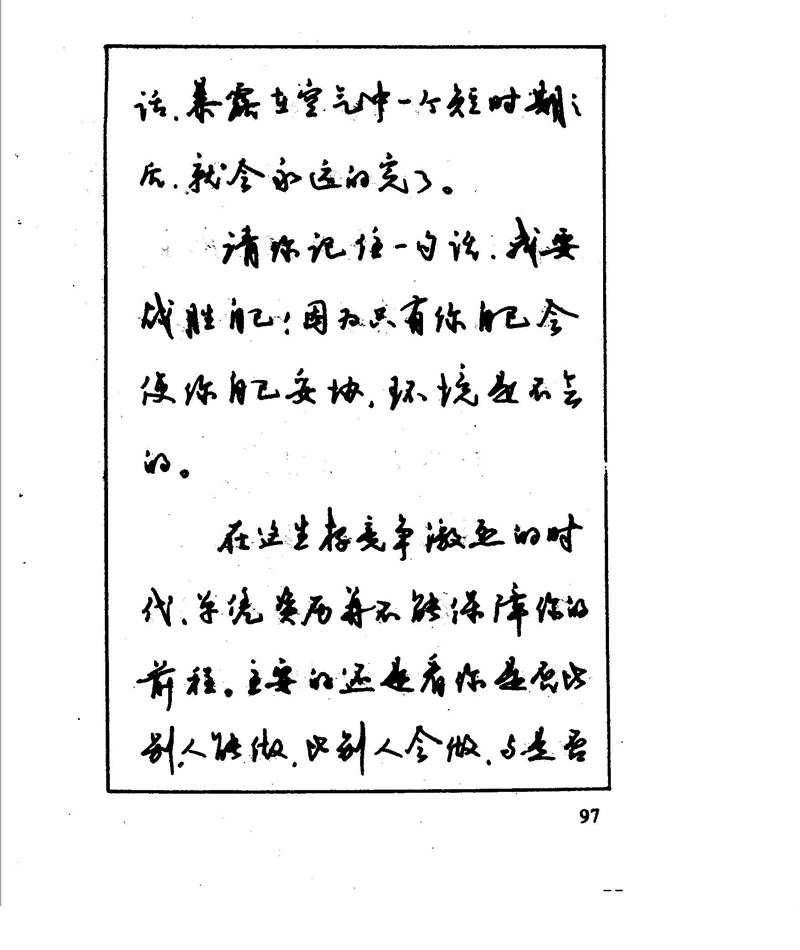 话，暴露在空气中一个短时期之
后，就会永远的完了。
请你记住一句话，我要
战胜自己！因为只有你自己会
使你自己妥协，环境是不会
的。
在这生存竞争激烈的时
代，单凭资历并不能保障你的
前程。主要的还是看你是否比
别人能做，比别人会做，与是否
97